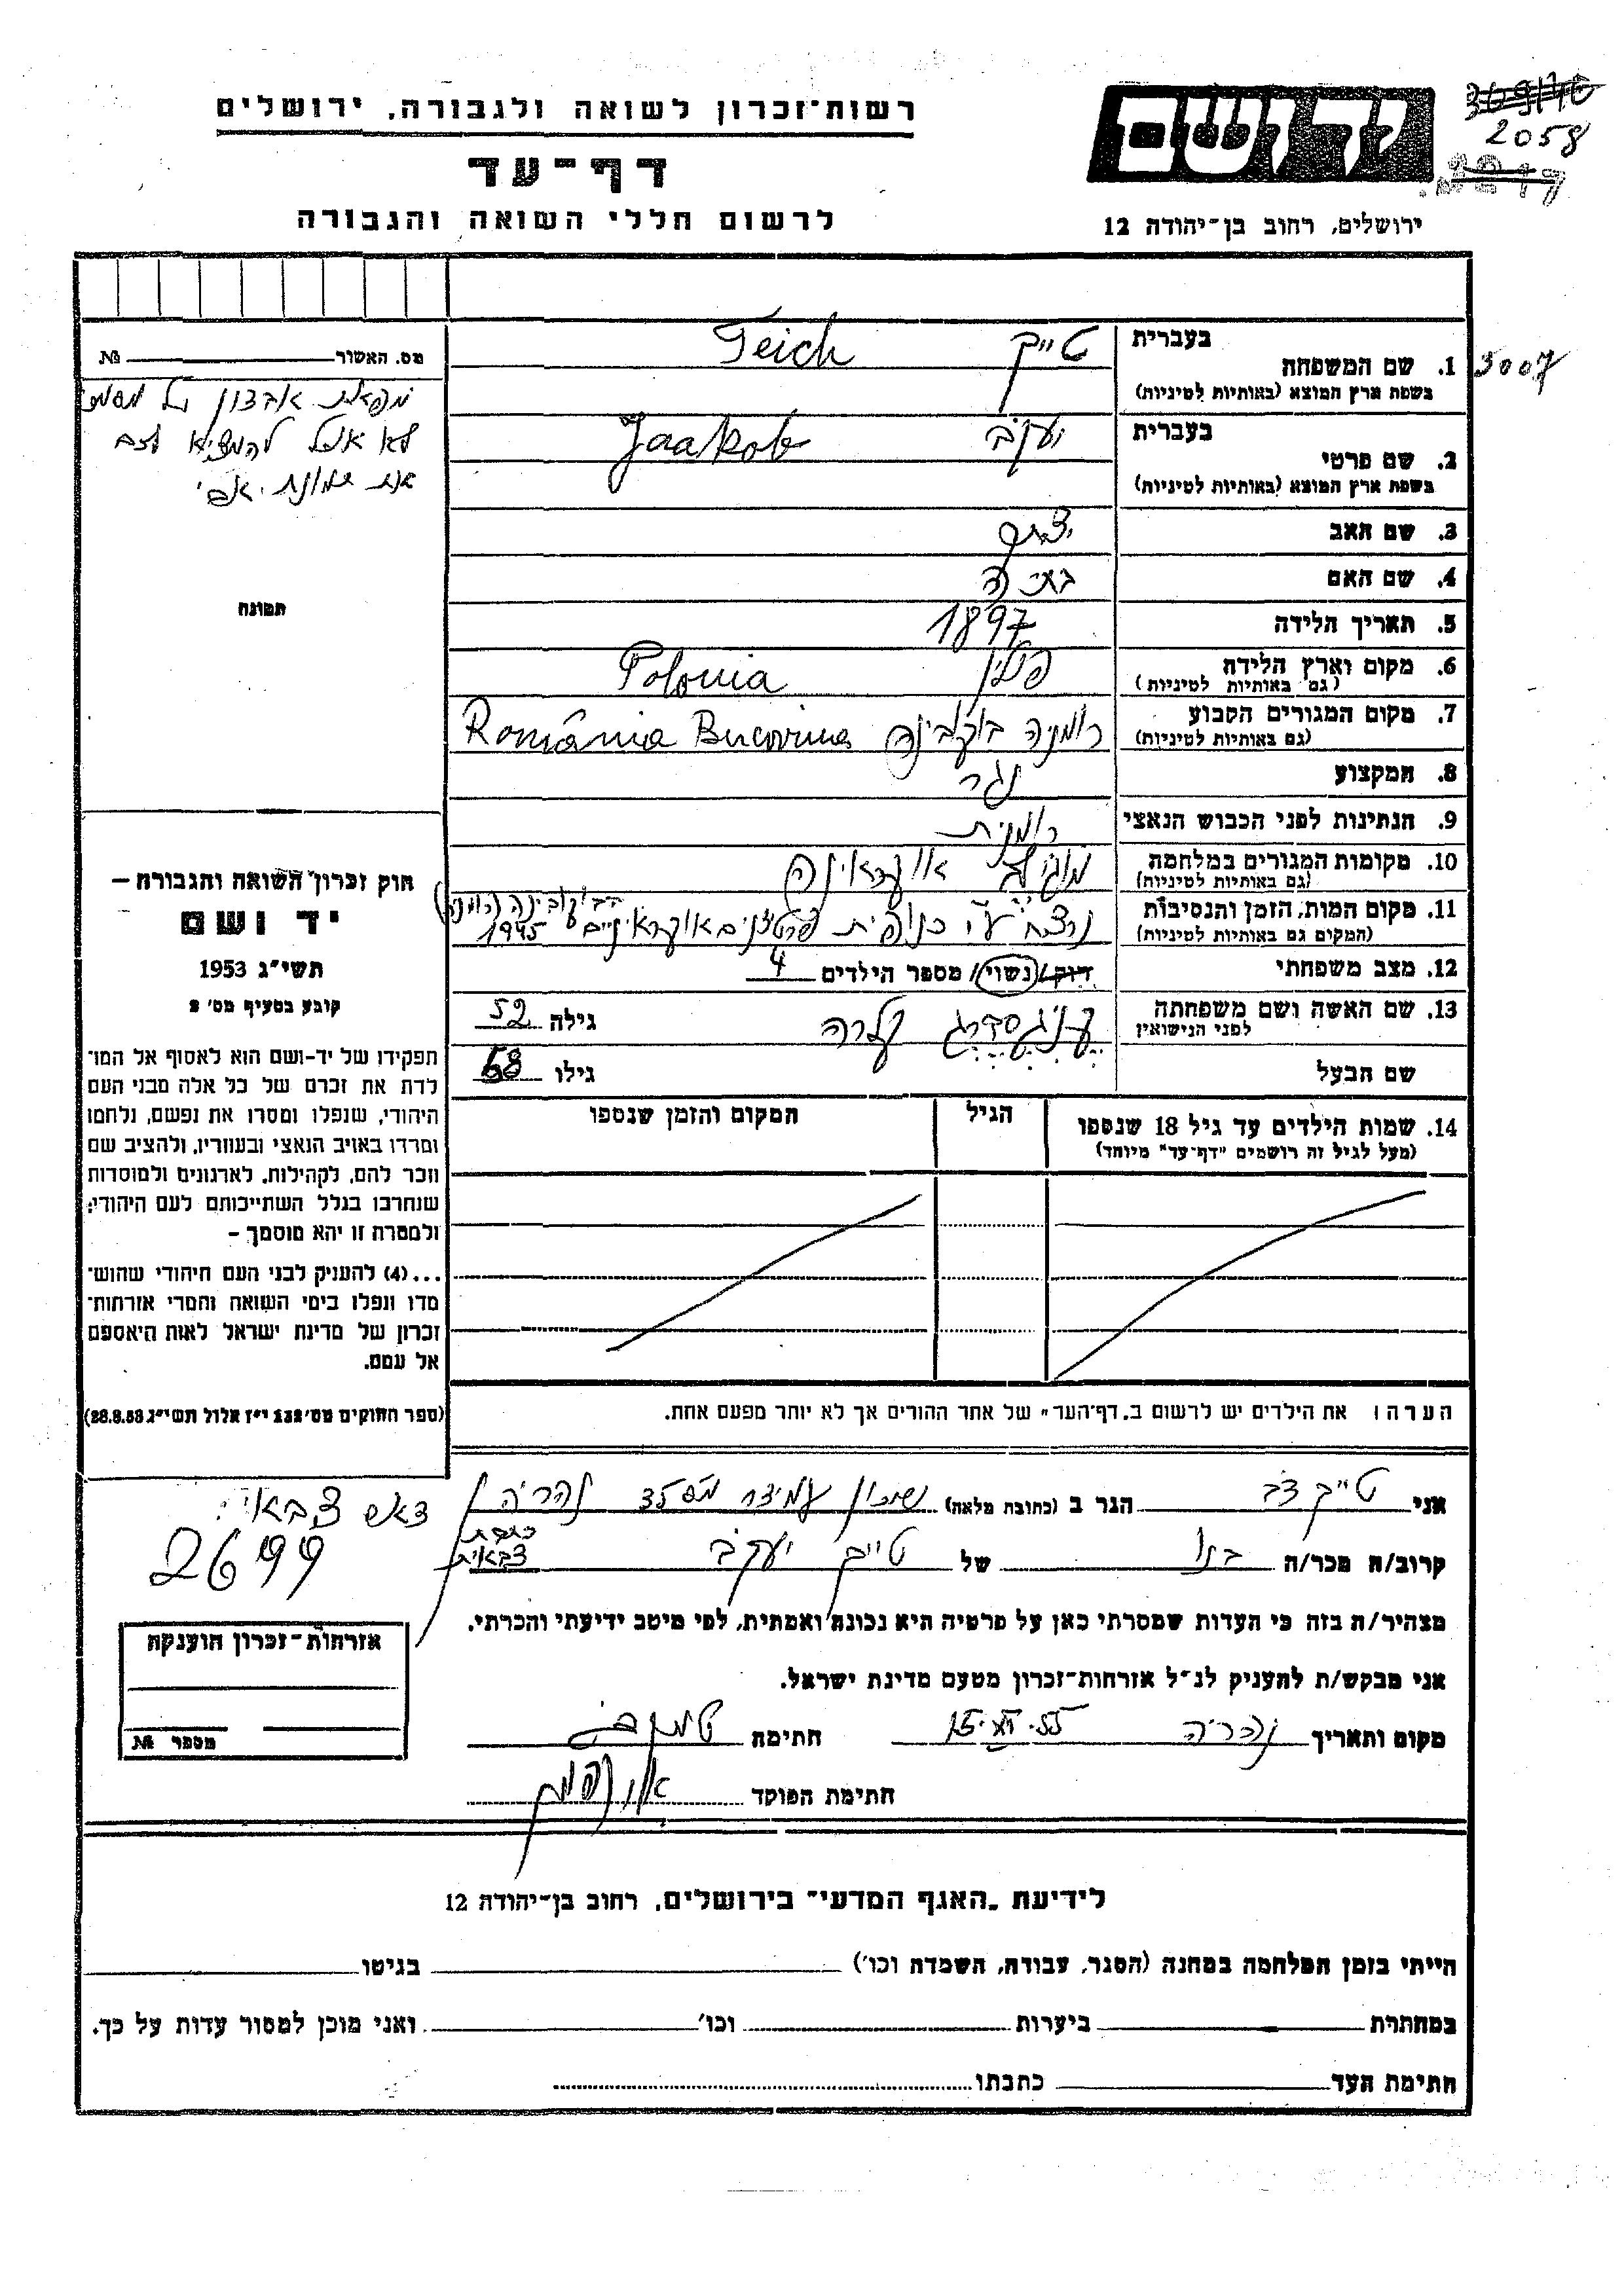 רשות־זכרון לשואה ולגבורה, ירושלים
דף־עד
לרשום חללי השואה והגבורה
יד ושם
2058
ירושלים, רחוב בן־יהודה 12
בעברית
1. שם המשפחה
בשפת ארץ המוצא (באותיות לטיניות)
טייך Teich
3007
בעברית
2. שם פרטי
בשפת ארץ המוצא (באותיות לטיניות)
יעקב Jaakob
3. שם האב
4. שם האם
5. תאריך הלידה 1897
6. מקום וארץ הלידה
(גם באותיות לטיניות)
פולין Polonia
7. מקום המגורים הקבוע
(גם באותיות לטיניות)
רומניה בוקובינה România Bucovina
8. המקצוע נגר
9. הנתינות לפני הכבוש הנאצי רומנית
10. מקומות המגורים במלחמה
(גם באותיות לטיניות)
אוקראינה
11. מקום המות, הזמן והנסיבות
(המקום גם באותיות לטיניות)
נרצח ע"י כנופית פרטיזנים אוקראיניים 1945
12. מצב משפחתי
רווק / נשוי / מספר הילדים 4
13. שם האשה ושם משפחתה
לפני הנישואין
קלרה גילה 52
שם הבעל גילו 58
14. שמות הילדים עד גיל 18 שנספו
(מעל לגיל זה רושמים "דף־עד" מיוחד)
הגיל
המקום והזמן שנספו
הערה: את הילדים יש לרשום ב„דף־העד" של אחד ההורים אך לא יותר מפעם אחת.
מס. האשור №
מפאת אבדון כל
לא אוכל להמציא לכם
את תמונת אבי
תמונה
חוק זכרון השואה והגבורה –
יד ושם
תשי"ג 1953
קובע בסעיף מס' 2
תפקידו של יד־ושם הוא לאסוף אל המו־
לדת את זכרם של כל אלה מבני העם
היהודי, שנפלו ומסרו את נפשם, נלחמו
ומרדו באויב הנאצי ובעוזריו, ולהציב שם
וזכר להם, לקהילות, לארגונים ולמוסדות
שנחרבו בגלל השתייכותם לעם היהודי;
ולמטרת זו יהא מוסמך –
...(4) להעניק לבני העם היהודי שהוש־
מדו ונפלו בימי השואה והמרי אזרחות־
זכרון של מדינת ישראל לאות היאספם
אל עמם.
(ספר החוקים מס' 132 י"ז אלול תשי"ג 28.8.53)
אני טייך צבי הגר ב (כתובת מלאה) שיכון עמידר נהריה
קרוב/ה מכר/ה בנו של טייך יעקב
כתבת
צבאית
דאר צבאי
2699
מצהיר/ה בזה כי העדות שמסרתי כאן על פרטיה היא נכונה ואמתית, לפי מיטב ידיעתי והכרתי.
אני מבקש/ת להעניק לנ"ל אזרחות־זכרון מטעם מדינת ישראל.
מקום ותאריך נהריה 15.XII.55 חתימה
חתימת הפוקד
אזרחות־זכרון הוענקה
מספר №
לידיעת „האגף המדעי" בירושלים, רחוב בן־יהודה 12
הייתי בזמן המלחמה במחנה (הסגר, עבודה, השמדה וכו') בגיטו
במחתרת ביערות וכו' ואני מוכן למסור עדות על כך.
חתימת העד כתבתו